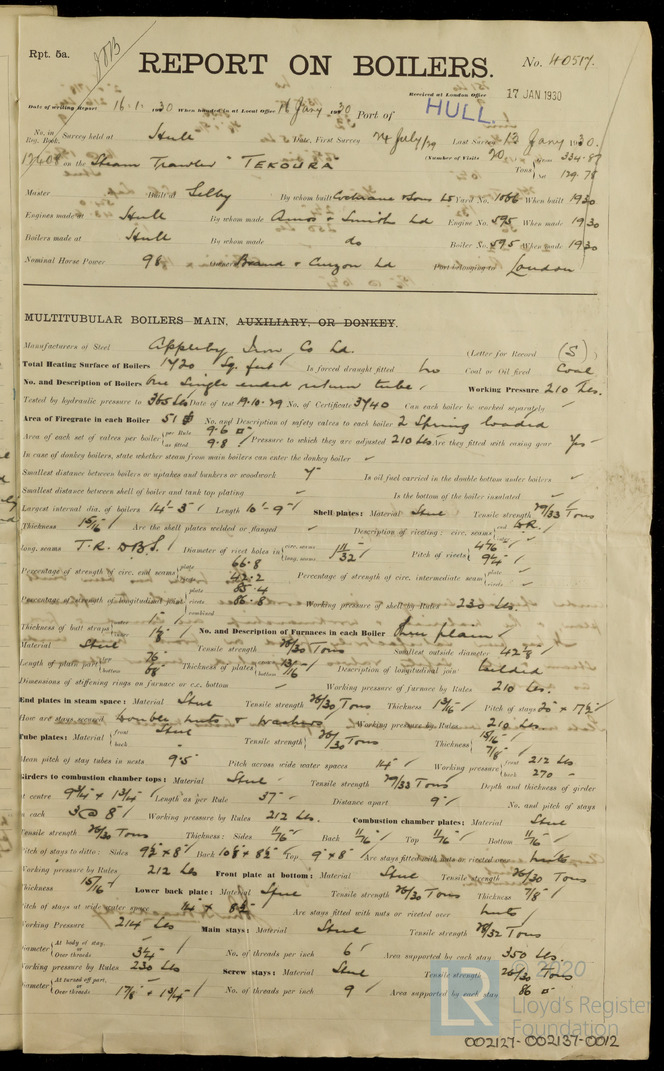 Rpt. 5a.
REPORT ON BOILERS.
No. 40517.
Received at London Office 17 JAN 1930
Date of writing Report 16.1.1930 When handed in at Local Office 16 Jany 1930 Port of HULL.
No. in Reg. Book. Survey held at Hull Date, First Survey 24 July/29 Last Survey 13 Jany 1930.
on the Steam Trawler "TEKOURA" (Number of Visits 20 Tons Gross 334.87 Net 129.78
Master Built at Selby By whom built Cochrane & Sons Ld Yard No. 1066 When built 1930
Engines made at Hull By whom made Amos & Smith Ld Engine No. 595 When made 1930
Boilers made at Hull By whom made do Boiler No. 595 When made 1930
Nominal Horse Power 98 Owners Brand & Curzon Ld Port belonging to London
MULTITUBULAR BOILERS MAIN, AUXILIARY, OR DONKEY.
Manufacturers of Steel Appleby Iron Co Ld. (Letter for Record (S))
Total Heating Surface of Boilers 1720 Sq. feet Is forced draught fitted No Coal or Oil fired Coal
No. and Description of Boilers One Single ended return tube. Working Pressure 210 Lbs.
Tested by hydraulic pressure to 365 Lbs Date of test 19.10.29 No. of Certificate 3740 Can each boiler be worked separately
Area of Firegrate in each Boiler 51 No. and Description of safety valves to each boiler 2 Spring loaded
Area of each set of valves per boiler per Rule 9.6 as fitted 9.8 Pressure to which they are adjusted 210 Lbs Are they fitted with easing gear Yes
In case of donkey boilers, state whether steam from main boilers can enter the donkey boiler
Smallest distance between boilers or uptakes and bunkers or woodwork Is oil fuel carried in the double bottom under boilers
Smallest distance between shell of boiler and tank top plating Is the bottom of the boiler insulated
Largest internal dia. of boilers 14'-3" Length 10'-9" Shell plates: Material Steel Tensile strength 29/33 Tons
Thickness 15/16" Are the shell plates welded or flanged Description of riveting: circ. seams end D.R.
long. seams T.R. D.B.S. Diameter of rivet holes in circ. seams long. seams 1 11/32" Pitch of rivets
Percentage of strength of circ. end seams plate 66.8 rivets 42.2 Percentage of strength of circ. intermediate seam plate rivets
Percentage of strength of longitudinal joint plate 85.4 rivets 86.8 combined Working pressure of shell by Rules 230 Lbs.
Thickness of butt straps outer 1" inner 1 1/8" No. and Description of Furnaces in each Boiler Three plain
Material Steel Tensile strength 26/30 Tons Smallest outside diameter 42 7/8"
Length of plain part top 76" bottom 68" Thickness of plates 13/16" Description of longitudinal joint Welded
Dimensions of stiffening rings on furnace or c.c. bottom Working pressure of furnace by Rules 210 Lbs.
End plates in steam space: Material Steel Tensile strength 26/30 Tons Thickness 1 3/16" Pitch of stays 20" x 17 1/2"
How are stays secured Double nuts & washers Working pressure by Rules 210 Lbs.
Tube plates: Material front back Steel Tensile strength 26/30 Tons Thickness 15/16" 7/8"
Mean pitch of stay tubes in nests 9.5 Pitch across wide water spaces 14" Working pressure front 212 Lbs back 270
Girders to combustion chamber tops: Material Steel Tensile strength 29/33 Tons Depth and thickness of girder
at centre 9 3/4" x 1 3/4" Length as per Rule 37" Distance apart 9" No. and pitch of stays
in each 3 @ 8" Working pressure by Rules 212 Lbs. Combustion chamber plates: Material Steel
Tensile strength 26/30 Tons Thickness: Sides 11/16" Back 11/16" Top 11/16" Bottom 11/16"
Pitch of stays to ditto: Sides 9 1/2" x 8" Back 10 1/8" x 8 1/2" Top 9" x 8" Are stays fitted with nuts or riveted over nuts
Working pressure by Rules 212 Lbs Front plate at bottom: Material Steel Tensile strength 26/30 Tons
Thickness 15/16" Lower back plate: Material Steel Tensile strength 26/30 Tons Thickness 7/8"
Pitch of stays at wide water space 14" x 8 1/2" Are stays fitted with nuts or riveted over nuts
Working Pressure 214 Lbs Main stays: Material Steel Tensile strength 28/32 Tons
Diameter At body of stay, or Over threads 3 1/4" No. of threads per inch 6 Area supported by each stay 350
Working pressure by Rules 230 Lbs Screw stays: Material Steel Tensile strength 26/30 Tons
Diameter At turned off part, or Over threads 1 7/8" & 1 3/4" No. of threads per inch 9 Area supported by each stay 86
© 2020
Lloyd's Register
Foundation
002127-002137-0012